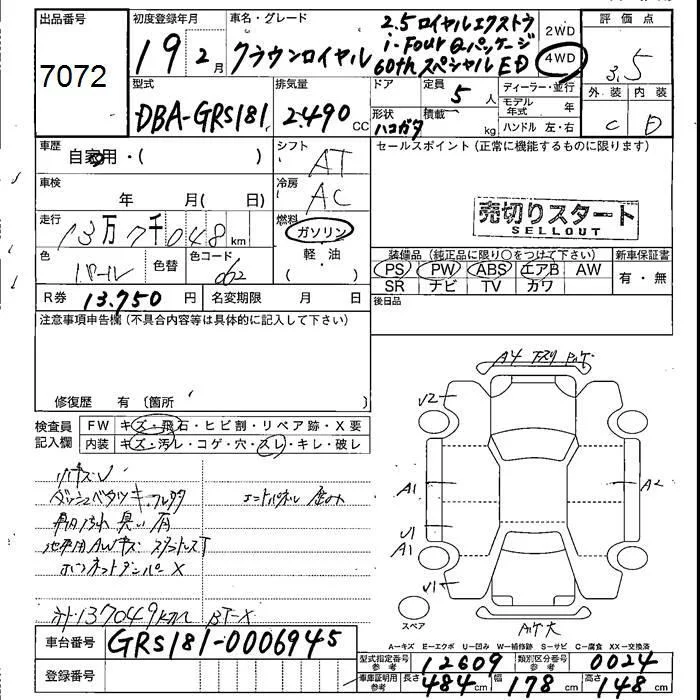 出品番号 初度登録年月 車名・グレード 2.5ロイヤルエクストラ 2WD 評価点
7072 19 2月 クラウンロイヤル i-Four Qパッケージ 4WD 3.5
60thスペシャルED
型式 排気量 ドア 定員 ディーラー・並行 外装 内装
DBA-GRS181 2490CC 5人 モデル年式 年 C D
形状 ハコガタ 積載 kg ハンドル 左・右
車歴 自家用・( ) シフト AT セールスポイント(正常に機能するものに限ります)
車検 年 月( 日) 冷房 AC
売切りスタート
SELLOUT
走行 13万7千048km 燃料 ガソリン
軽・油
( )
色 パール 色替 色コード 062
装備品(純正品に限り○をつけて下さい) 新車保証書
PS PW ABS エアB AW 有・無
SR ナビ TV カワ
R券 13.750円 名変期限 月 日 後日品
注意事項申告欄(不具合内容等は具体的に記入して下さい)
修復歴 有(箇所
検査員記入欄 FW キズ・飛石・ヒビ割・リペア跡・X要
内装 キズ・汚レ・コゲ・穴・スレ・キレ・破レ
A4
V2
A1
A2
V1
A1
V1
ダッシュベタツキ
X
137049km
スペア
A=キズ E=エクボ U=凹み W=補修跡 S=サビ C=腐食 XX=交換済
車台番号 GRS181-0006945
型式指定番号 参考 12609 類別区分番号 参考 0024
登録番号
車庫証明用 参考 長さ 484cm 幅 178cm 高さ 148cm